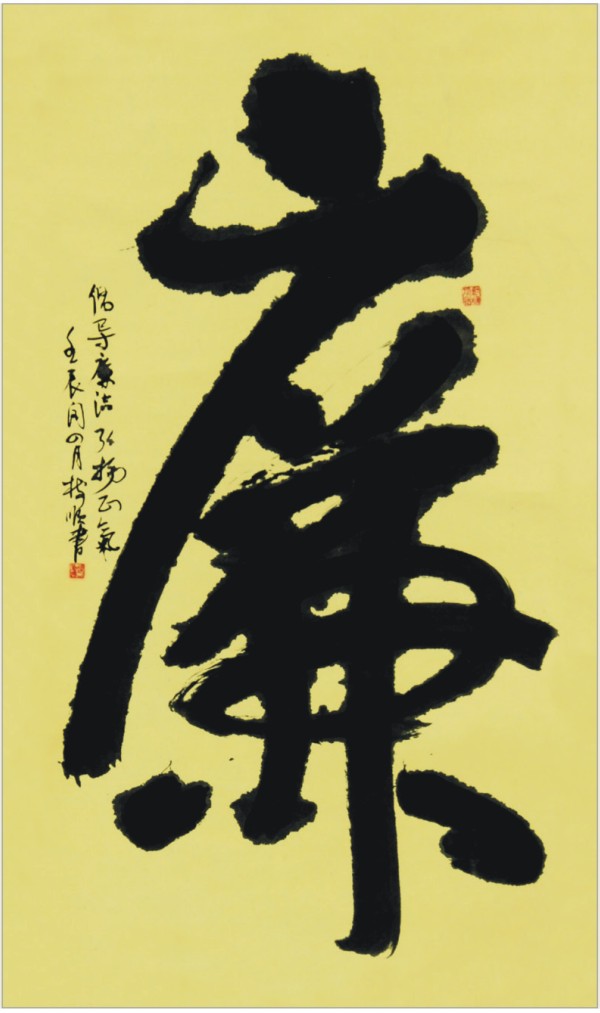 廉
倡导廉洁弘扬正氣
壬辰闰四月 書